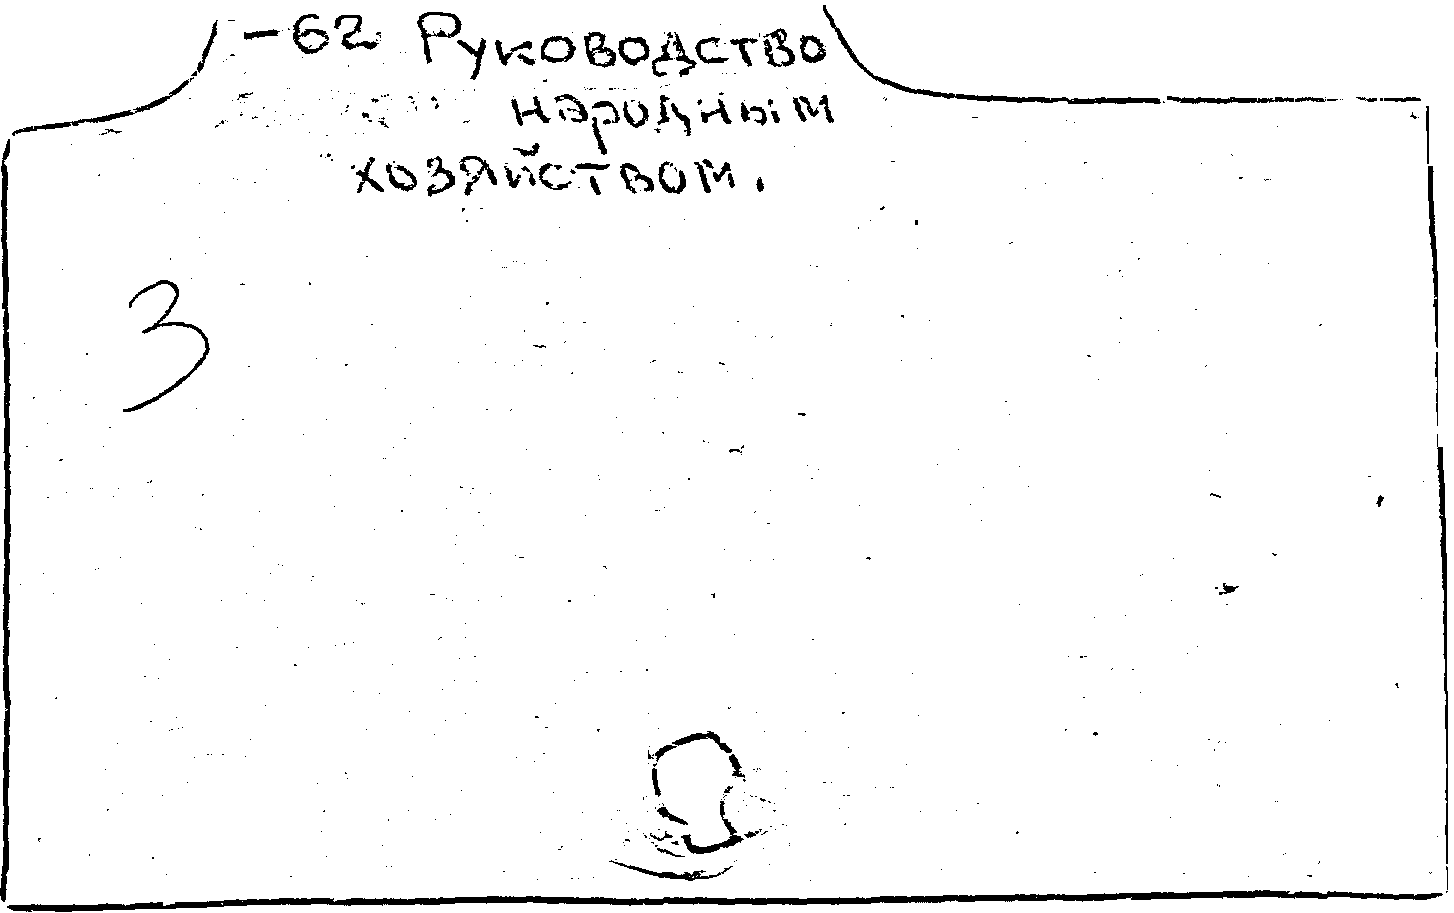 -62 Руководство
народным
хозяйством.
3